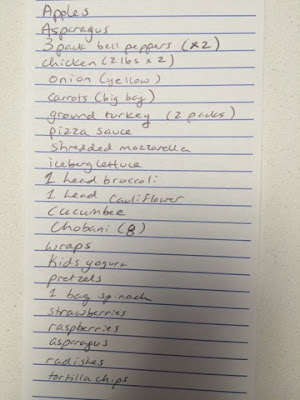 Apples
Asparagus
3 pack bell peppers (x2)
chicken (2 lbs x 2)
onion (yellow)
carrots (big bag)
ground turkey (2 packs)
pizza sauce
shredded mozzarella
iceberg lettuce
1 head broccoli
1 head cauliflower
cucumber
Chobani (8)
wraps
Kids yogurt
pretzels
1 bag spinach
strawberries
raspberries
asparagus
radishes
tortilla chips